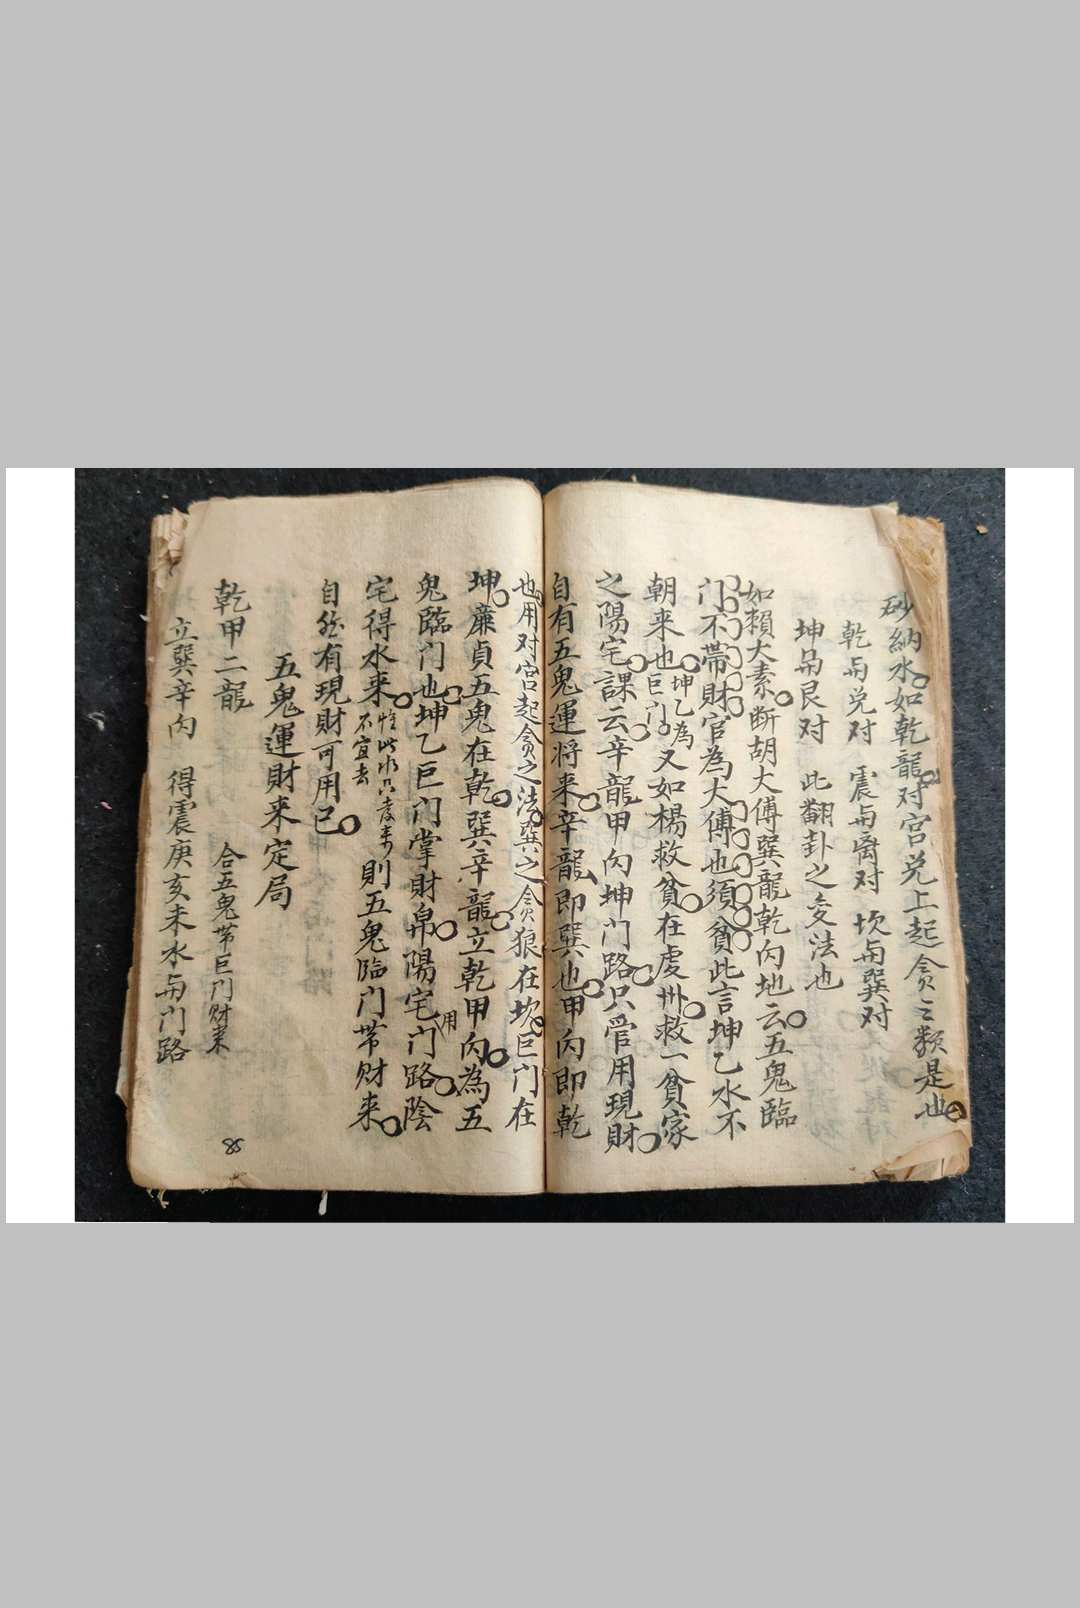 砂納水如乾龍对宮兑上起貪之類是也
乾与兑对 震与离对 坎与巽对
坤与艮对 此翻卦之变法也
如賴大素断胡大傅巽龍乾丙地云五鬼臨
门不帶財官為大傅也須貧此言坤乙水不
朝来也坤乙為巨门又如楊救貧在虔州救一貧家
之陽宅課云辛龍甲丙坤门路只管用現財
自有五鬼運将来辛龍即巽也甲丙即乾
也用对宮起貪之法巽之貪狼在坎巨门在
坤廉貞五鬼在乾巽辛龍立乾甲丙為五
鬼臨门也坤乙巨门掌財帛陽宅用门路陰
宅得水来惟此水只宜来不宜去則五鬼臨门带财来
自然有現财可用已
五鬼運財来定局
乾甲二龍 合五鬼带巨门财来
立巽辛向 得震庚亥未水与门路
85